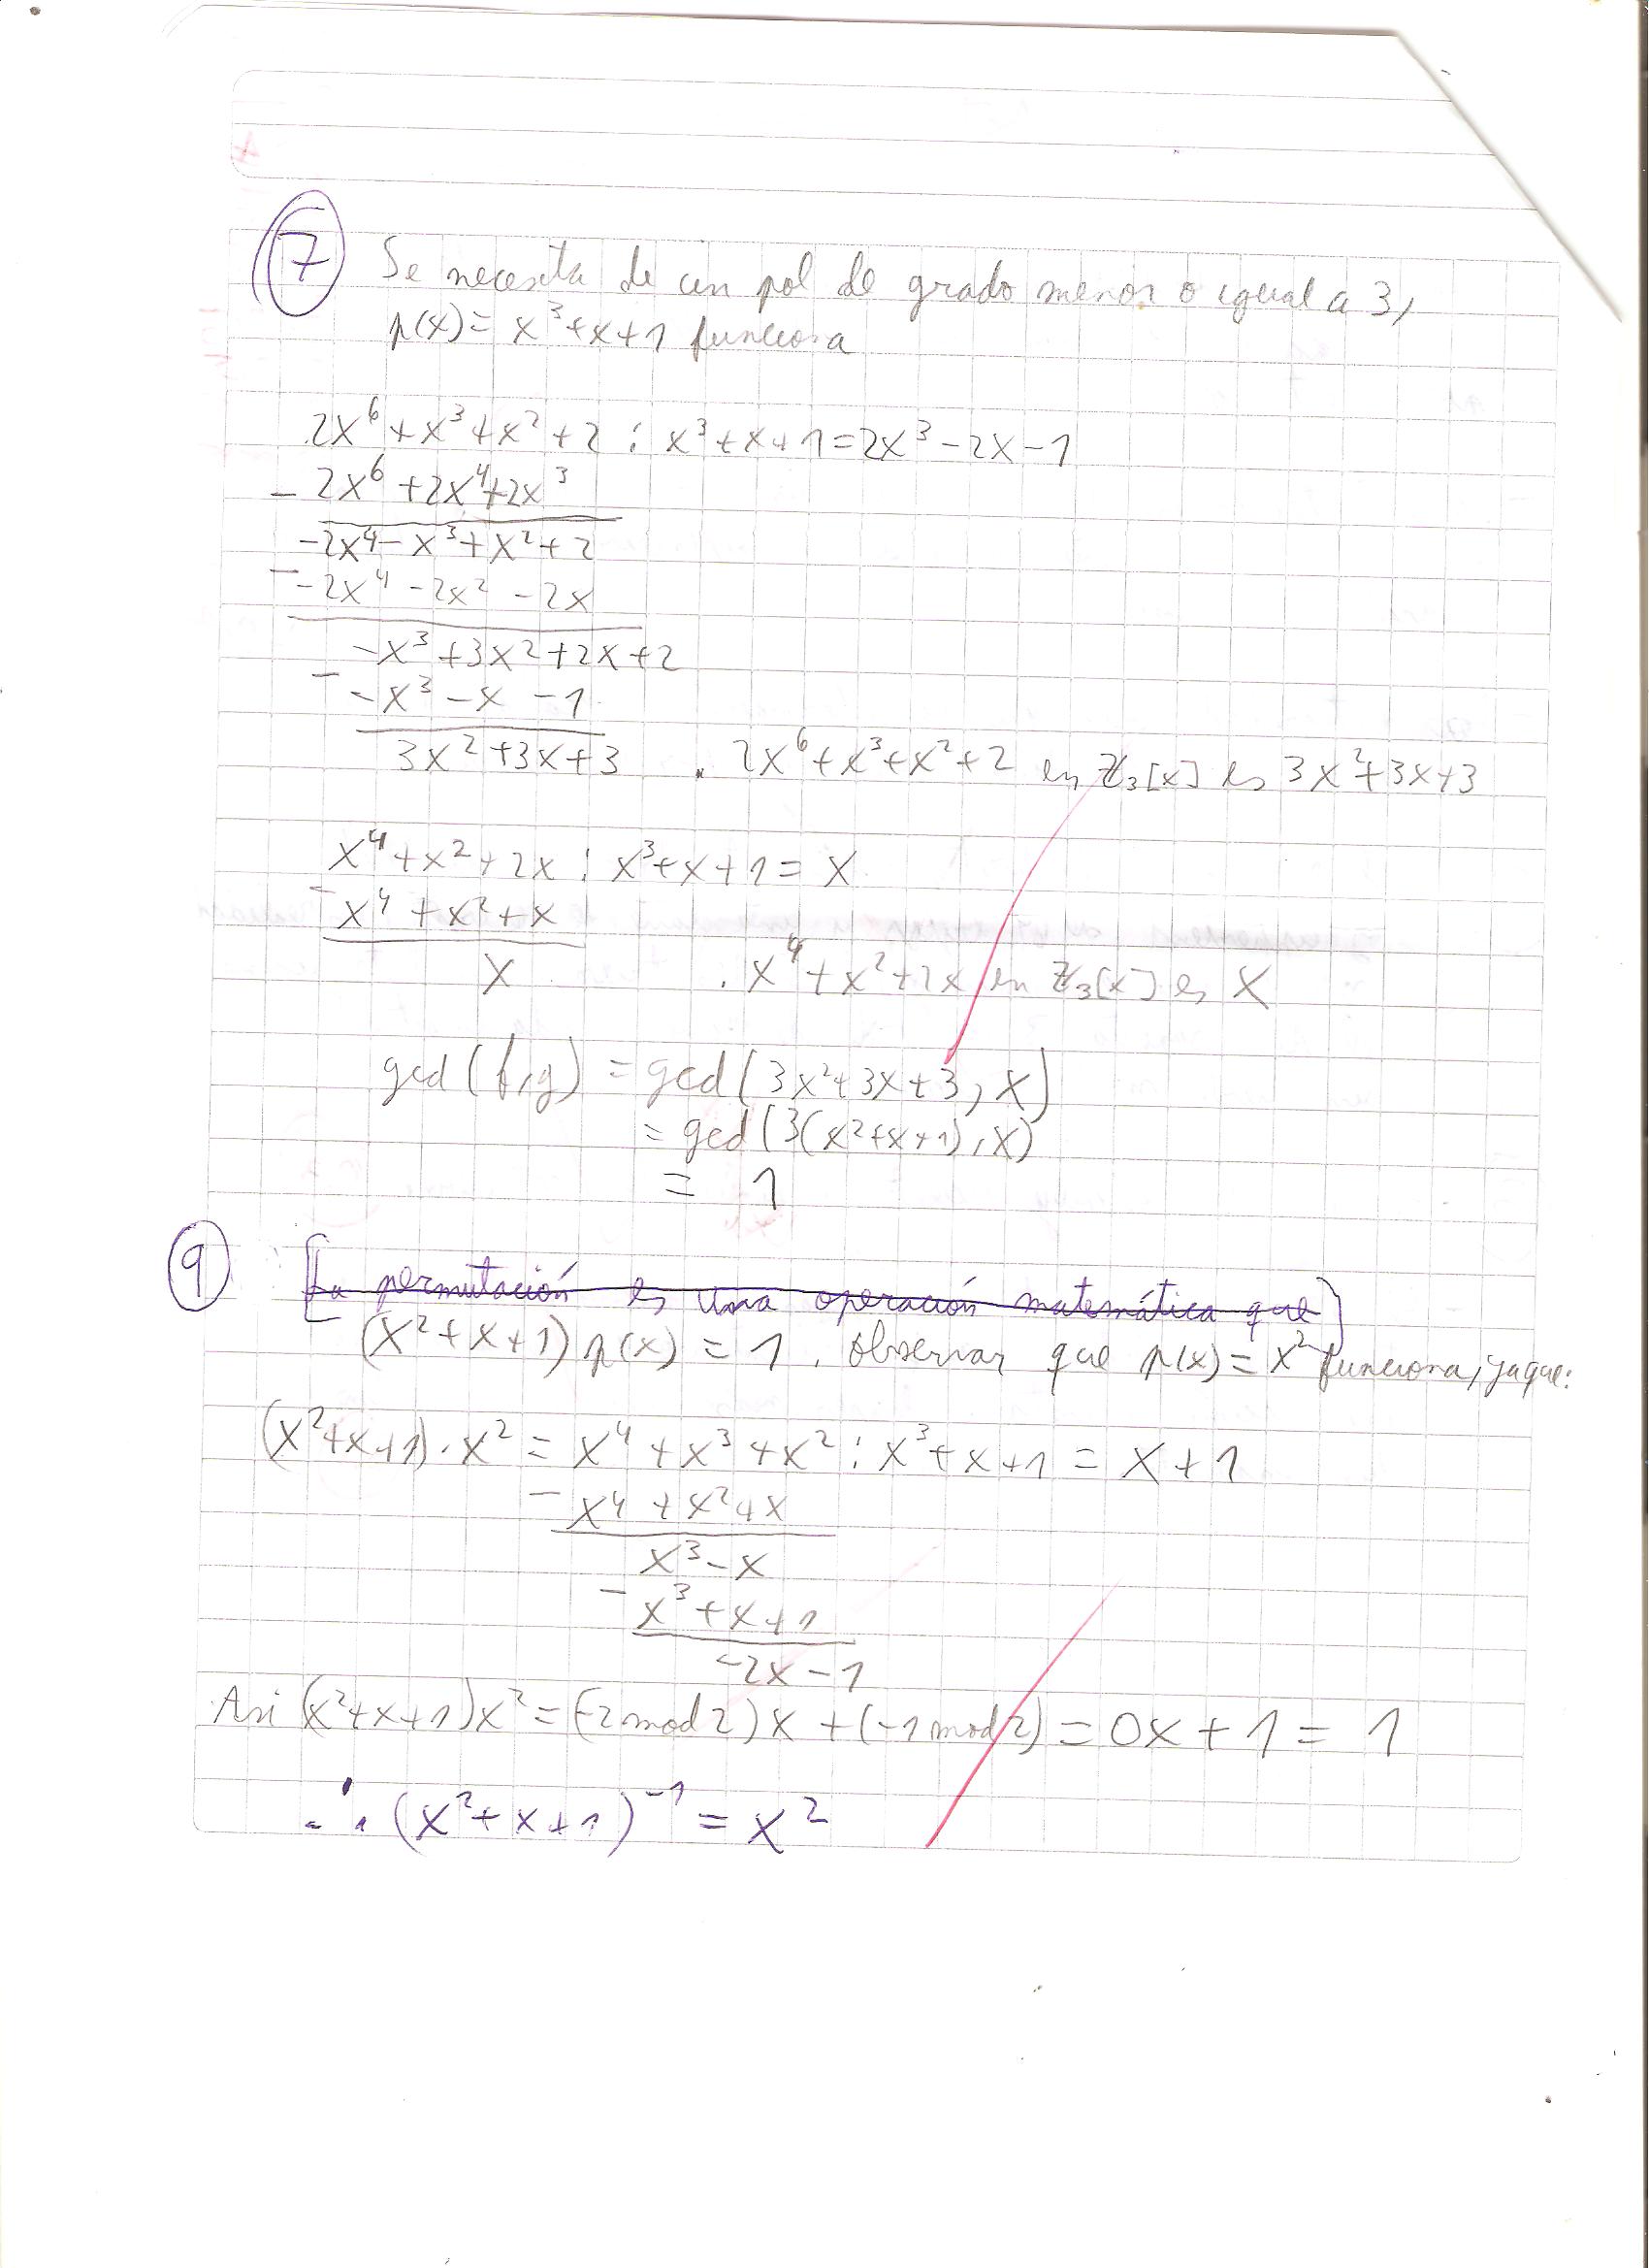 7 Se necesita de un pol de grado menor o igual a 3,
p(x) = x³+x+1 funciona
2x⁶+x³+x²+2 : x³+x+1=2x³-2x-1
- 2x⁶+2x⁴+2x³
-2x⁴-x³+x²+2
- -2x⁴-2x²-2x
-x³+3x²+2x+2
- -x³-x-1
3x²+3x+3 . 2x⁶+x³+x²+2 en Z₃[x] es 3x²+3x+3
x⁴+x²+2x : x³+x+1=x
- x⁴+x²+x
x . x⁴+x²+2x en Z₃[x] es x
gcd(f,g) = gcd(3x²+3x+3, x)
= gcd(3(x²+x+1), x)
= 1
9 [La permutación es una operación matemática que]
(x²+x+1) p(x) = 1, observar que p(x) = x² funciona, ya que:
(x²+x+1)·x² = x⁴+x³+x² : x³+x+1 = x+1
- x⁴+x²+x
x³-x
- x³+x+1
-2x-1
Asi (x²+x+1)x² = (-2 mod 2)x + (-1 mod 2) = 0x+1 = 1
∴ (x²+x+1)⁻¹ = x²